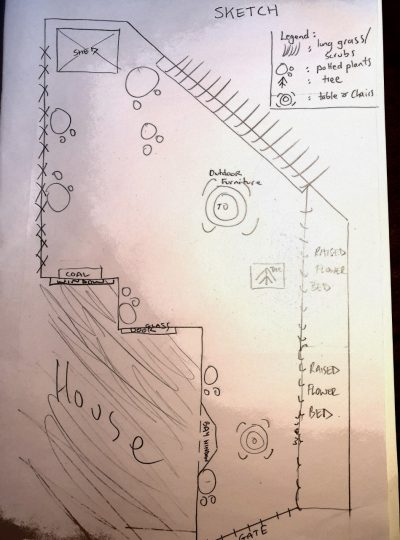 SKETCH
Legend:
: long grass/
scrubs
: potted plants
: tree
: table & Chairs
SHED
Outdoor
Furniture
TO
COAL
WINDOW
GLASS
DOOR
RAISED
FLOWER
BED
RAISED
FLOWER
BED
House
BAY WINDOW
GATE